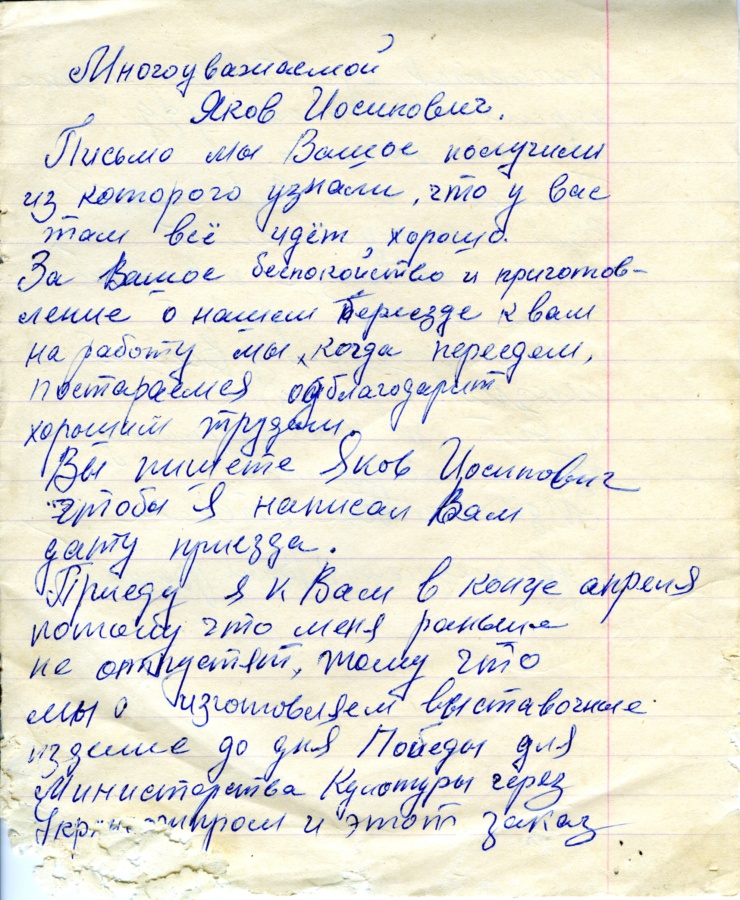 Многоуважаемой
Яков Иосипович.
Письмо мы Ваше получили
из которого узнали, что у вас
там всё идёт хорошо.
За Ваше беспокойство и приготов-
ление о нашем переезде к вам
на работу мы, когда переедем,
постараемся отблагодарит
хорошим трудом.
Вы пишете Яков Иосипович
чтобы я написал Вам
дату приезда.
Приеду я к Вам в конце апреля
потому что меня раньше
не отпустят, тому что
мы изготовляем выставочные
изделие до дня Победы для
Министерства Культуры через
и этот заказ